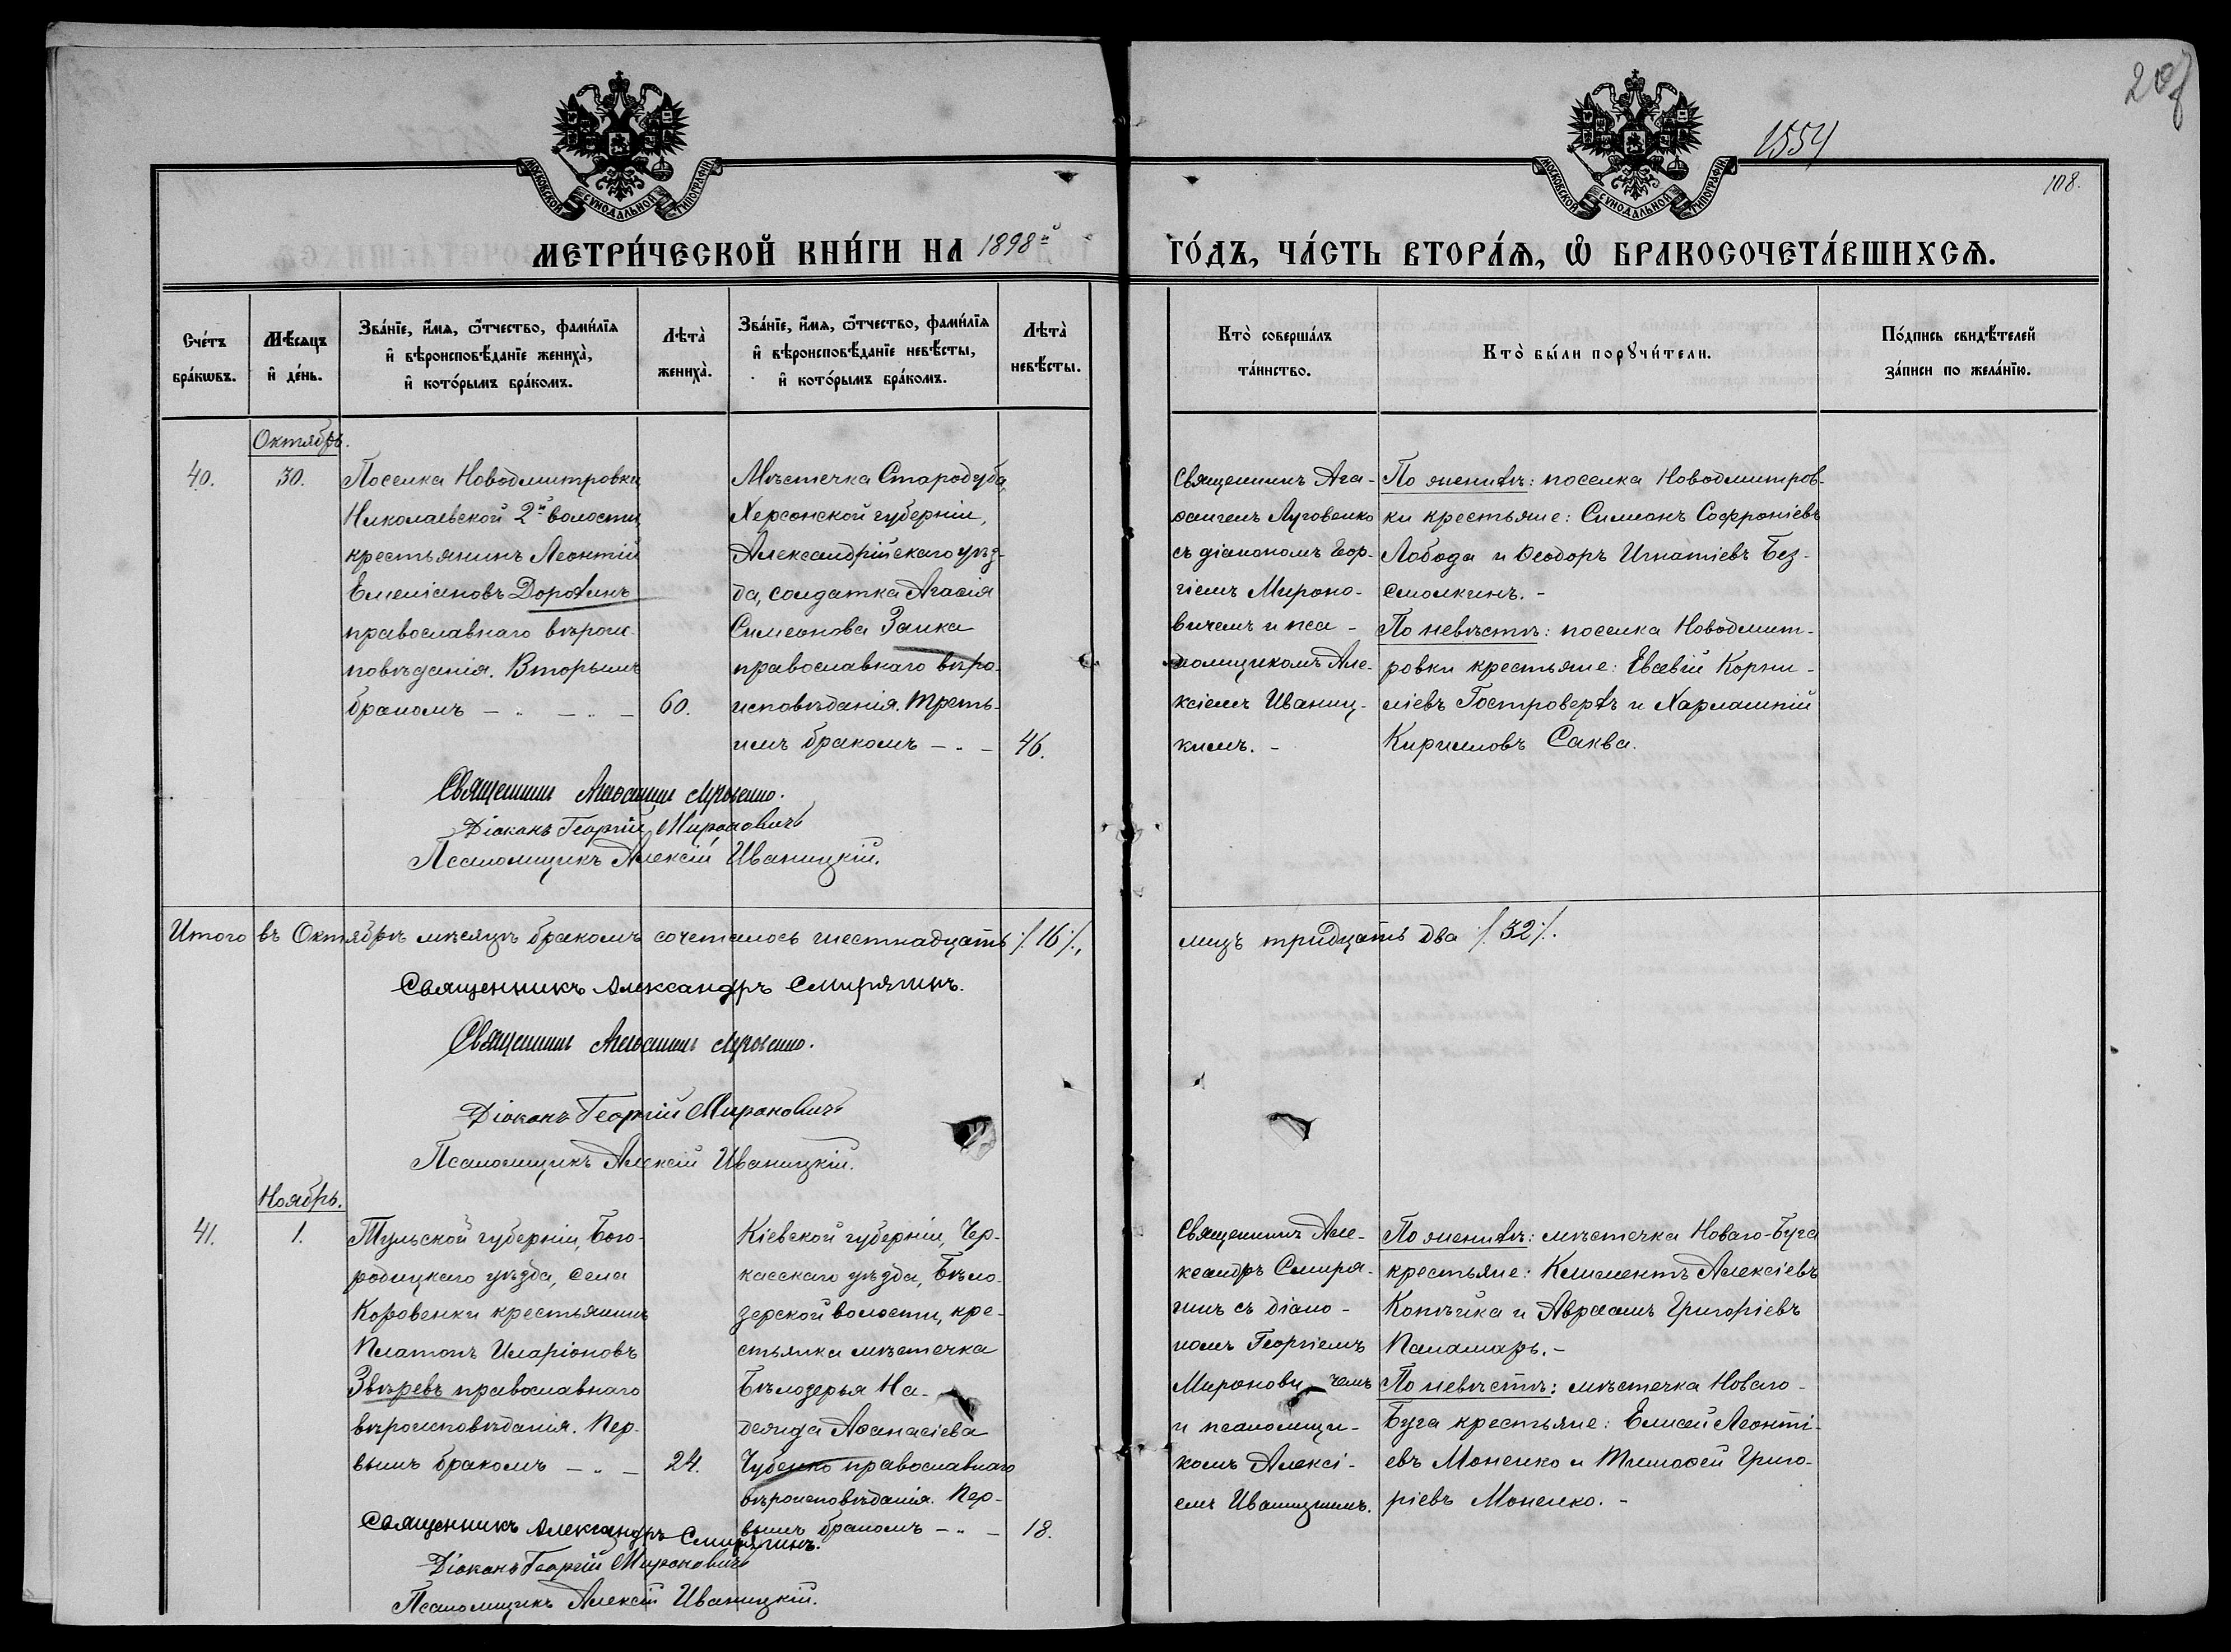 207
1554
108.
МОСКОВСКОЙ СУНОДАЛЬНОЙ ТИПОГРАФІИ
МОСКОВСКОЙ СУНОДАЛЬНОЙ ТИПОГРАФІИ
МЕТРИ́ЧЕСКОЙ КНИ́ГИ НА 1898й
ГО́ДЪ, ЧА́СТЬ ВТОРА́Я, Ѡ БРАКОСОЧЕТА́ВШИХСЯ.
Сче́тъ
бра́кѡвъ.
Мѣ́сяцъ
и҆ де́нь.
Зва́нїе, и҆́мѧ, ѻ҆́тчество, фами́лїѧ
и҆ вѣроисповѣ́данїе жениха̀,
и҆ кото́рымъ бра́комъ.
Лѣта̀
жениха̀.
Зва́нїе, и҆́мѧ, ѻ҆́тчество, фами́лїѧ
и҆ вѣроисповѣ́данїе невѣ́сты,
и҆ кото́рымъ бра́комъ.
Лѣта̀
невѣ́сты.
Кто̀ соверша́лъ
та́инство.
Кто̀ бы́ли порꙋчи́тели.
По́дпись свидѣ́телей
за́писи по жела́нїю.
Октябрь.
40.
30.
Поселка Новодмитровки
Николаевской 2й волости,
крестьянинъ Леонтій
Емеліановъ Дорохинъ
православнаго вѣроис-
повѣданія. Вторымъ
бракомъ — „ — „ —
60.
Мѣстечка Стародуба,
Херсонской губерніи,
Александрійскаго уѣз-
да, солдатка Агафія
Симеонова Заика
православнаго вѣро-
исповѣданія. Треть-
имъ бракомъ — „ —
46.
Священникъ Ага-
ѳангелъ Луговенко
съ діакономъ Геор-
гіемъ Мироно-
вичемъ и пса-
ломщикомъ Але-
ксіемъ Иваниц-
кимъ. -
По женихѣ: поселка Новодмитров-
ки крестьяне: Симеонъ Софроніевъ
Лобода и Ѳеодоръ Игнатіевъ Без-
смолкинъ. -
По невѣстѣ: поселка Новодмит-
ровки крестьяне: Евсевій Корни-
ліевъ Гостроверхъ и Харлампій
Кирилловъ Саква.
Священникъ Агаѳангелъ Луговенко.
Діаконъ Георгій Мироновичъ
Псаломщикъ Алексій Иваницкій.
Итого въ Октябрѣ мѣсяцѣ бракомъ сочеталось шестнадцать /. 16 /.,
лицъ тридцать два /. 32 /.
Священникъ Александръ Смирягинъ.
Священникъ Агаѳангелъ Луговенко.
Діаконъ Георгій Мироновичъ
Псаломщикъ Алексій Иваницкій.
Ноябрь.
41.
1.
Тульской губерніи, Бого-
родицкаго уѣзда, села
Коровенки крестьянинъ
Платонъ Иларіоновъ
Звѣревъ православнаго
вѣроисповѣданія. Пер-
вымъ бракомъ — „ —
24.
Кіевской губерніи, Чер-
касскаго уѣзда, Бѣло-
зерской волости, кре-
стьянка мѣстечка
Бѣлозерья На-
дежда Аѳанасіева
Чубенко православнаго
вѣроисповѣданія. Пер-
вымъ бракомъ — „ —
18.
Священникъ Але-
ксандръ Смиря-
гинъ съ діако-
номъ Георгіемъ
Мироновичемъ
и псаломщи-
комъ Алексі-
емъ Иваницкимъ.
По женихѣ: мѣстечка Новаго-Буга
крестьяне: Климентъ Алексіевъ
Копѣйка и Авраамъ Григоріевъ
Паламарь. -
По невѣстѣ: мѣстечка Новаго-
Буга крестьяне: Елисей Леонті-
евъ Моненко и Тимоѳей Григо-
ріевъ Моненко. -
Священникъ Александръ Смирягинъ.
Діаконъ Георгій Мироновичъ
Псаломщикъ Алексій Иваницкій.